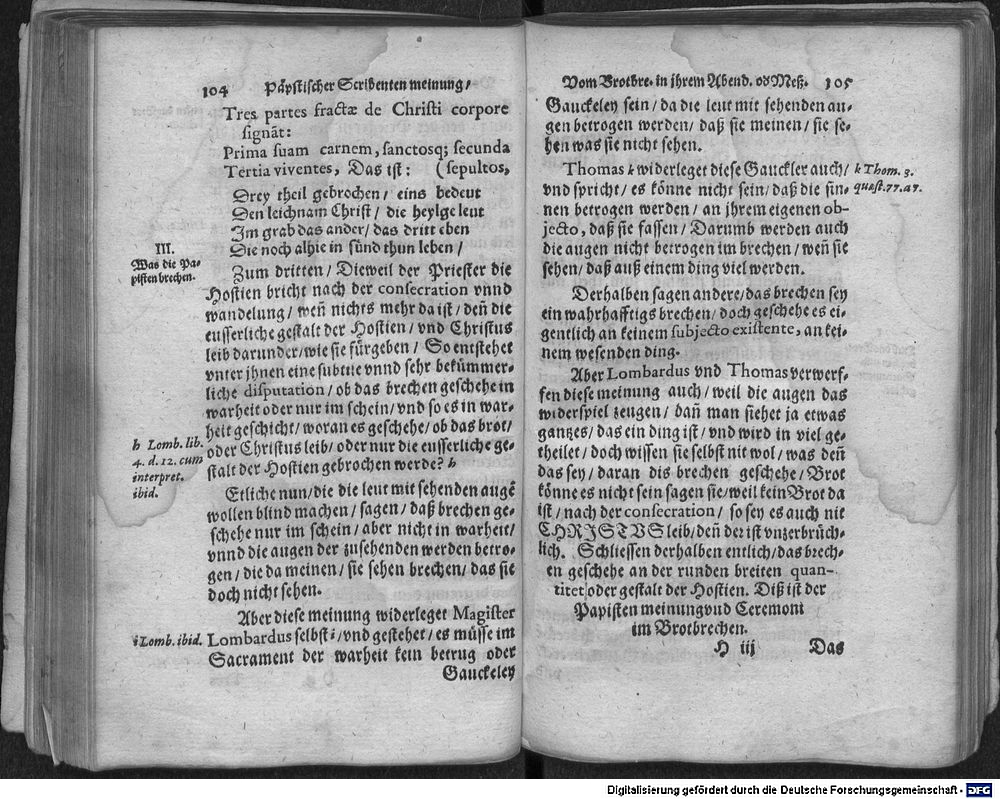 104 Päpstischer Scribenten meinung/
Tres partes fractæ de Christi corpore
signãt:
Prima suam carnem, sanctosq; secunda
Tertia viventes, Das ist: (sepultos,
Drey theil gebrochen/ eins bedeut
Den leichnam Christ/ die heylge leut
Im grab das ander/ das dritt eben
Die noch alhie in sünd thun leben/
III.
Was die Pa-
pisten brechen.
Zum dritten/ Dieweil der Priester die
Hostien bricht nach der consecration vnnd
wandelung/ weñ nichts mehr da ist/ deñ die
eusserliche gestalt der Hostien/ vnd Christus
leib darunder/ wie sie fürgeben/ So entstehet
vnter jhnen eine subtile vnnd sehr bekümmer-
liche disputation/ ob das brechen geschehe in
warheit oder nur im schein/ vnd so es in war-
heit geschicht/ woran es geschehe/ ob das brot/
oder Christus leib/ oder nur die eusserliche ge-
stalt der Hostien gebrochen werde? h
h Lomb. lib.
4. d. 12. cum
interpret.
ibid.
Etliche nun/ die die leut mit sehenden augẽ
wollen blind machen/ sagen/ daß brechen ge-
schehe nur im schein/ aber nicht in warheit/
vnnd die augen der zusehenden werden betro-
gen/ die da meinen/ sie sehen brechen/ das sie
doch nicht sehen.
Aber diese meinung widerleget Magister
Lombardus selbst i/ vnd gestehet/ es müsse im
Sacrament der warheit kein betrug oder
Gauckeley
i Lomb. ibid.
Vom Brotbre. in jhrem Abend. od Meß. 105
Gauckeley sein/ da die leut mit sehenden au-
gen betrogen werden/ daß sie meinen/ sie se-
hen was sie nicht sehen.
Thomas k widerleget diese Gauckler auch/
vnd spricht/ es könne nicht sein/ daß die sin-
nen betrogen werden/ an jhrem eigenen ob-
jecto, daß sie fassen/ Darumb werden auch
die augen nicht betrogen im brechen/ weñ sie
sehen/ daß auß einem ding viel werden.
k Thom. 3.
quæst. 77. a 7.
Derhalben sagen andere/ das brechen sey
ein wahrhafftigs brechen/ doch geschehe es ei-
gentlich an keinem subjecto existente, an kei-
nem wesenden ding.
Aber Lombardus vnd Thomas verwerf-
fen diese meinung auch/ weil die augen das
widerspiel zeugen/ dañ man siehet ja etwas
gantzes/ das ein ding ist/ vnd wird in viel ge-
theilet/ doch wissen sie selbst nit wol/ was deñ
das sey/ daran dis brechen geschehe/ Brot
könne es nicht sein sagen sie/ weil kein Brot da
ist/ nach der consecration/ so sey es auch nit
CHRISTVS leib/ deñ der ist vnzerbrüch-
lich. Schliessen derhalben entlich/ das brech-
en geschehe an der runden breiten quan-
titet oder gestalt der Hostien. Diß ist der
Papisten meinung vnd Ceremoni
im Brotbrechen.
H iij Das
Digitalisierung gefördert durch die Deutsche Forschungsgemeinschaft - DFG